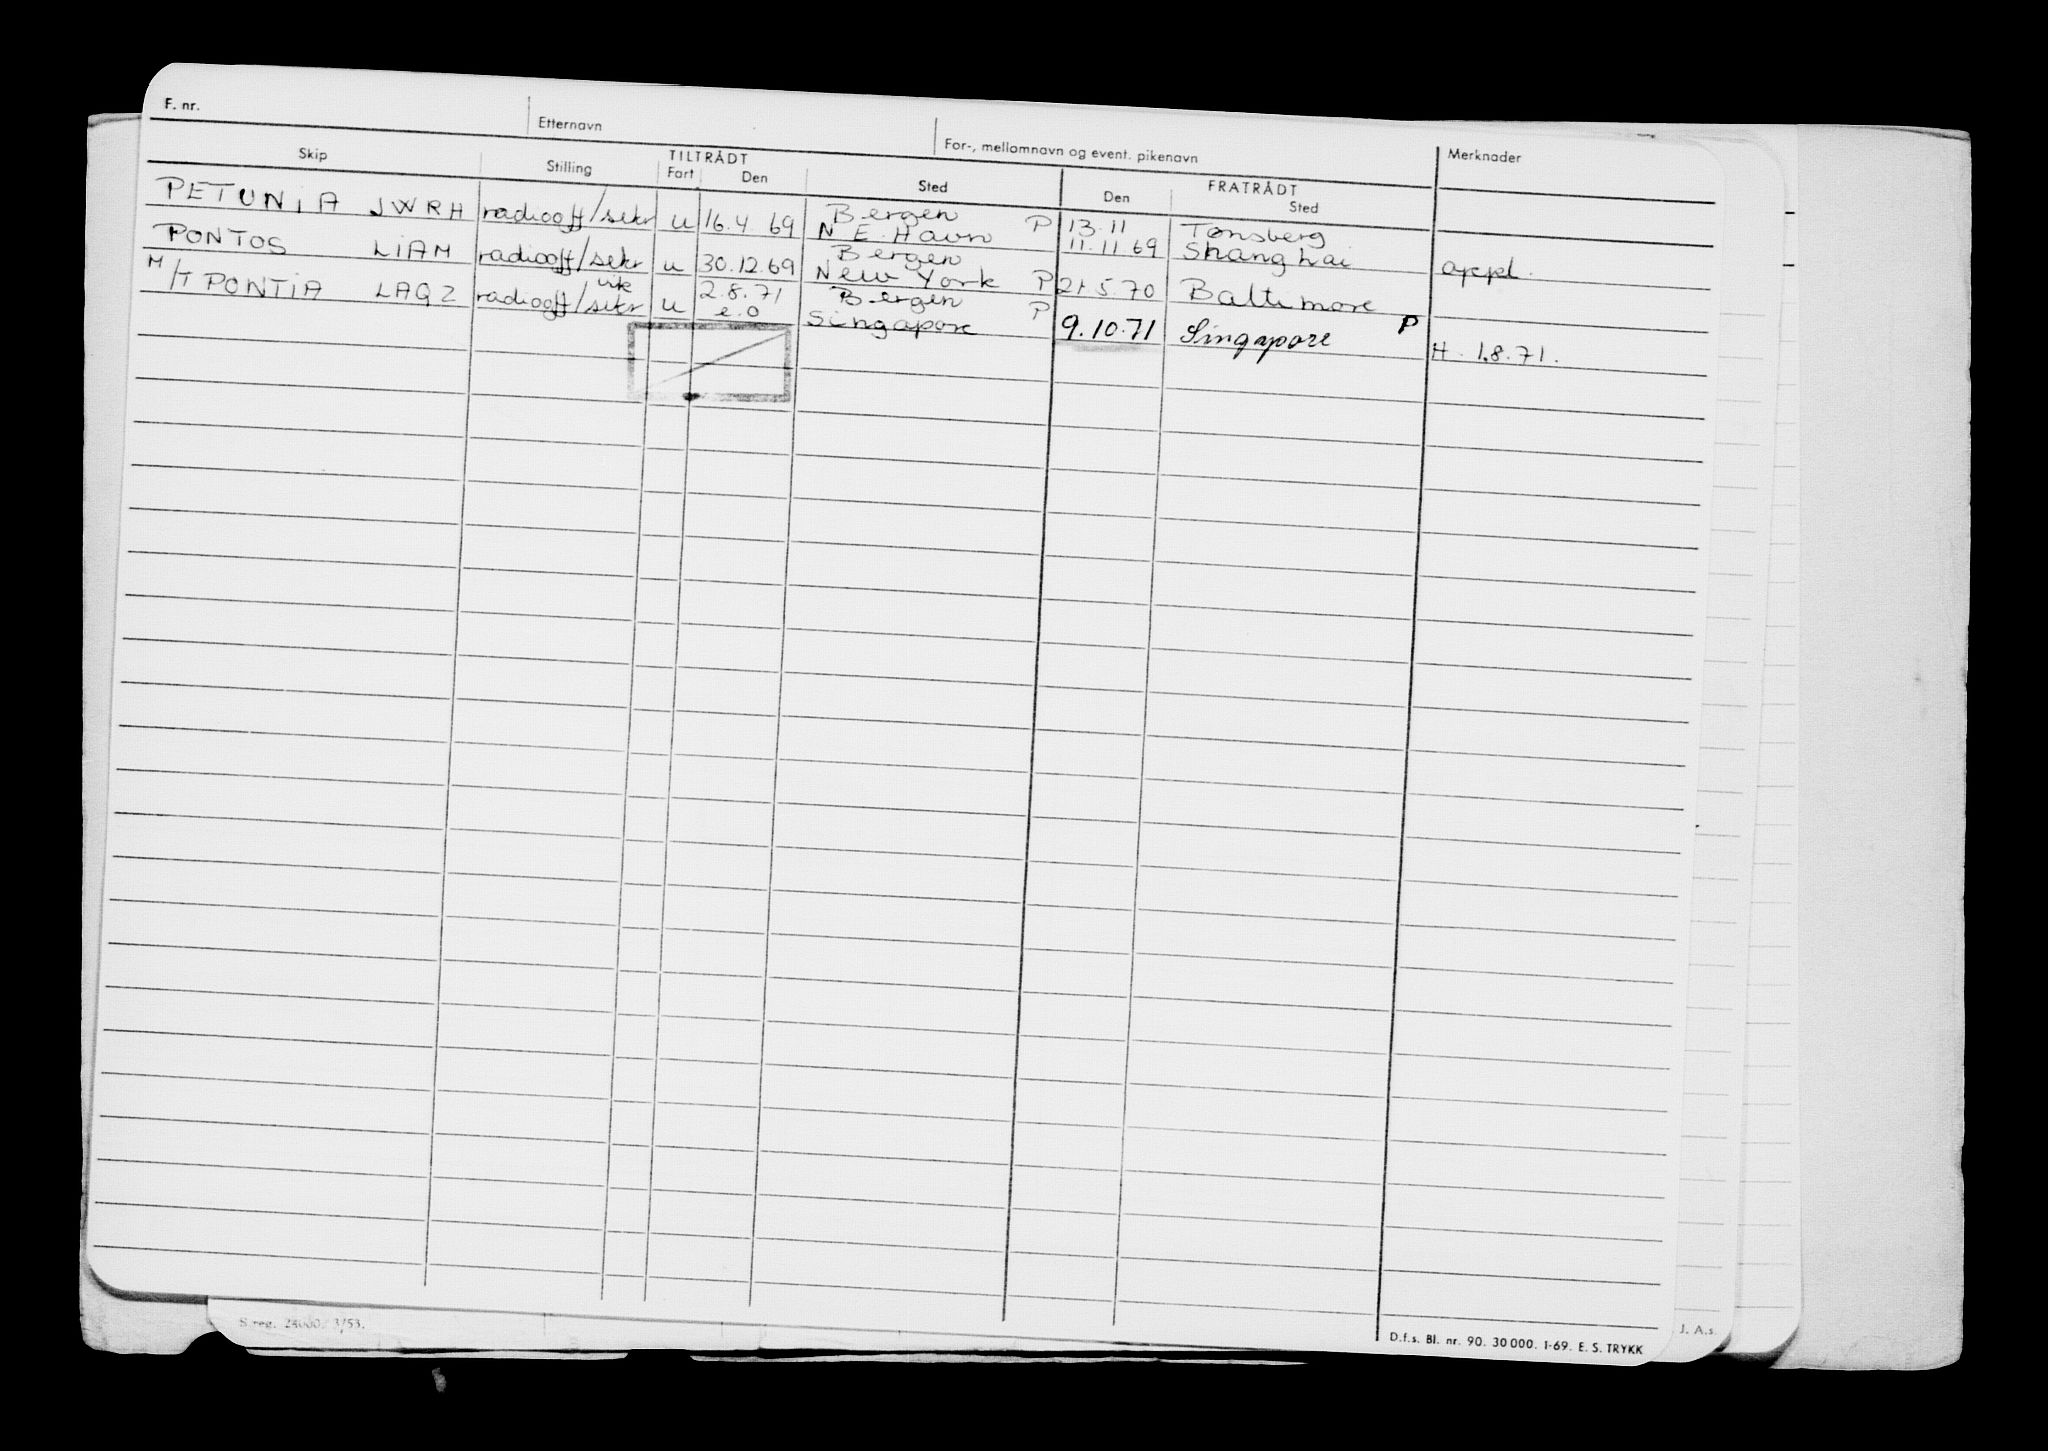 F. nr. Etternavn For-, mellomnavn og event. pikenavn Merknader
TILTRÅDT FRATRÅDT
Skip Stilling Fart Den Sted Den Sted
PETUNiA JWRH radiooff/sekr u 16.4.69 Bergen P 13.11 Tønsberg
N.E. Havn 11.11.69 Shanghai appl.
PONTOS LiAM radiooff/sekr u 30.12.69 Bergen
New York P 21.5.70 Baltimore
M/T PONTiA LAQZ radiooff/sekr vik u 2.8.71 Bergen P
e.o Singapore 9.10.71 Singapore P H. 1.8.71.
S.reg. 24000. 3/53.
D.f.s. Bl. nr. 90. 30 000. 1-69. E. S. TRYKK
J. A.s.